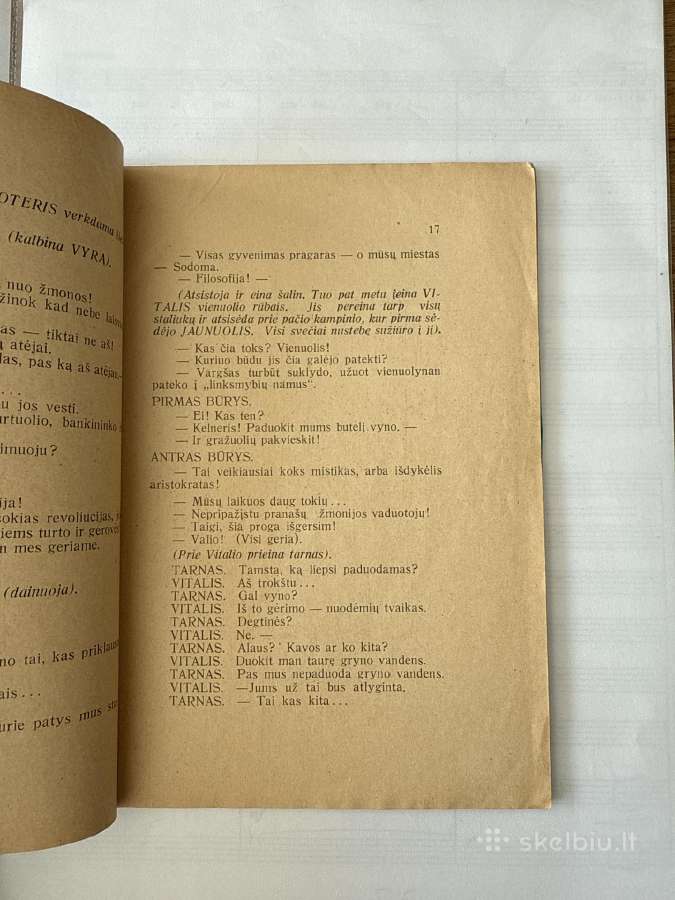 OTERIS verkdama
(kalbina VYRĄ).
nuo žmonos!
žinok kad nebe
as — tiktai ne aš!
atėjai.
las, pas ką aš atėjau.
...
u jos vesti.
urtuolio, bankininko
imuoju?
ija!
sokias revoliucijas,
iems turto ir gerovės
n mes geriame.
(dainuoja).
no tai, kas
ais...
urie patys mus
17
— Visas gyvenimas pragaras — o mūsų miestas
— Sodoma.
— Filosofija! —
(Atsistoja ir eina šalin. Tuo pat metu įeina VI-
TALIS vienuolio rūbais. Jis pereina tarp visų
staliukų ir atsisėda prie pačio kampinio, kur pirma sė-
dėjo JAUNUOLIS. Visi svečiai nustebę sužiūro į jį).
— Kas čia toks? Vienuolis!
— Kuriuo būdu jis čia galėjo patekti?
— Vargšas turbūt suklydo, užuot vienuolynan
pateko į „linksmybių namus“.
PIRMAS BŪRYS.
— Ei! Kas ten?
— Kelneris! Paduokit mums butelį vyno. —
— Ir gražuolių pakvieskit!
ANTRAS BŪRYS.
— Tai veikiausiai koks mistikas, arba išdykėlis
aristokratas!
— Mūsų laikuos daug tokių...
— Nepripažįstu pranašų žmonijos vaduotojų!
— Taigi, šia proga išgersim!
— Valio! (Visi geria).
(Prie Vitalio prieina tarnas).
TARNAS. Tamsta, ką liepsi paduodamas?
VITALIS. Aš trokštu...
TARNAS. Gal vyno?
VITALIS. Iš to gėrimo — nuodėmių tvaikas.
TARNAS. Degtinės?
VITALIS. Ne. —
TARNAS. Alaus? Kavos ar ko kita?
VITALIS. Duokit man taurę gryno vandens.
TARNAS. Pas mus nepaduoda gryno vandens.
VITALIS. —Jums už tai bus atlyginta.
TARNAS. — Tai kas kita...
skelbiu.lt